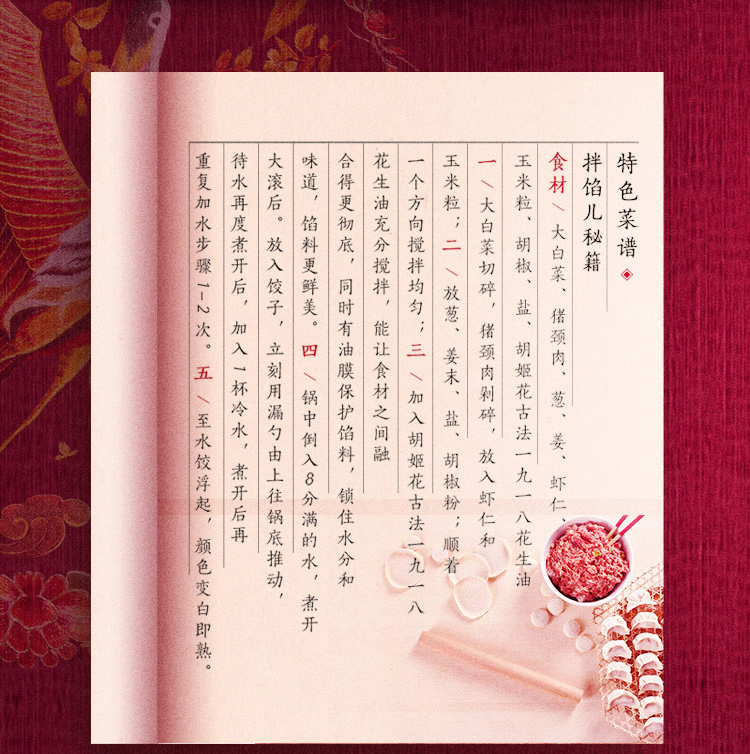 特色菜谱
拌馅儿秘籍
食材/大白菜、猪颈肉、葱、姜、虾仁、
玉米粒、胡椒、盐、胡姬花古法一九一八花生油
一/大白菜切碎，猪颈肉剁碎，放入虾仁和
玉米粒；二/放葱、姜末、盐、胡椒粉；顺着
一个方向搅拌均匀；三/加入胡姬花古法一九一八
花生油充分搅拌，能让食材之间融
合得更彻底，同时有油膜保护馅料，锁住水分和
味道，馅料更鲜美。四/锅中倒入8分满的水，煮开
大滚后。放入饺子，立刻用漏勺由上往锅底推动，
待水再度煮开后，加入1杯冷水，煮开后再
重复加水步骤1-2次。五/至水饺浮起，颜色变白即熟。